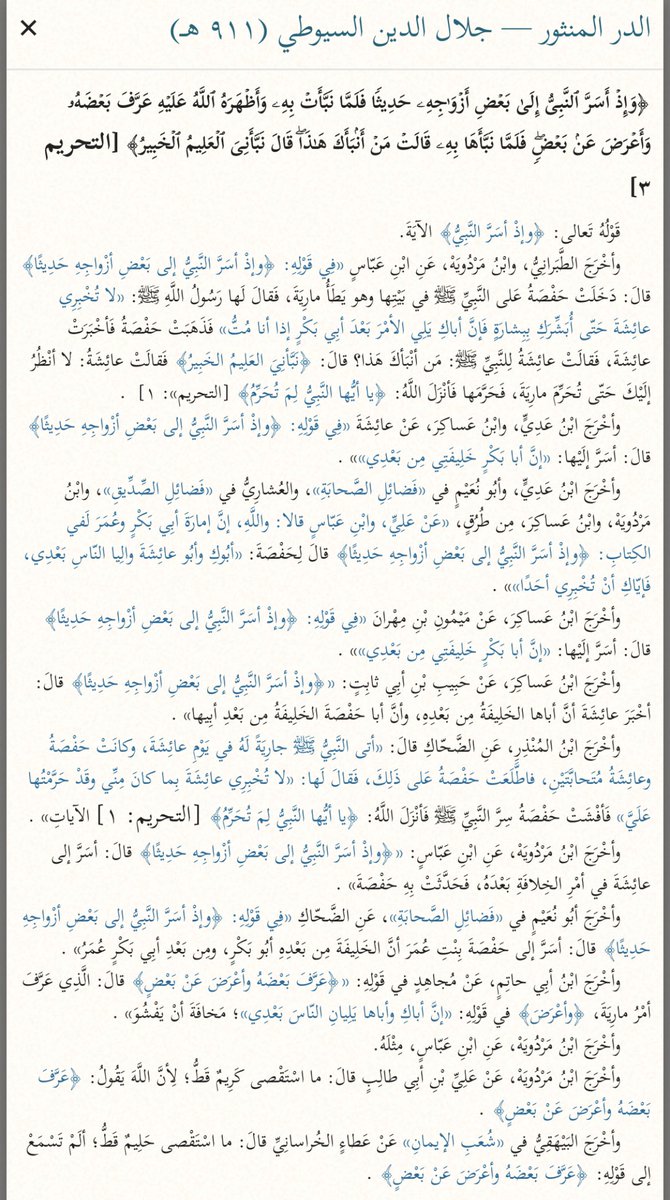 الدر المنثور — جلال الدين السيوطي (٩١١ هـ)
×
﴿وَإِذۡ أَسَرَّ ٱلنَّبِيُّ إِلَىٰ بَعۡضِ أَزۡوَٰجِهِۦ حَدِيثࣰا فَلَمَّا نَبَّأَتۡ بِهِۦ وَأَظۡهَرَهُ ٱللَّهُ عَلَيۡهِ عَرَّفَ بَعۡضَهُۥ
وَأَعۡرَضَ عَنۢ بَعۡضࣲۖ فَلَمَّا نَبَّأَهَا بِهِۦ قَالَتۡ مَنۡ أَنۢبَأَكَ هَـٰذَاۖ قَالَ نَبَّأَنِیَ ٱلۡعَلِیمُ ٱلۡخَبِیرُ﴾ [التحريم
٣]
قَوْلُهُ تَعالى: ﴿وإذْ أسَرَّ النَّبِيُّ﴾ الآيَةَ.
وأخْرَجَ الطَّبَرانِيُّ، وابْنُ مَرْدُوَيْهَ، عَنِ ابْنِ عَبّاسٍ «فِي قَوْلِهِ: ﴿وإذْ أسَرَّ النَّبِيُّ إلى بَعْضِ أزْواجِهِ حَدِيثًا﴾
قالَ: دَخَلَتْ حَفْصَةُ عَلى النَّبِيِّ ﷺ في بَيْتِها وهو يَطَأُ مارِيَةَ، فَقالَ لَها رَسُولُ اللَّهِ ﷺ: «لا تُخْبِرِي
عائِشَةَ حَتّى أُبَشِّرَكِ بِبِشارَةٍ فَإنَّ أباكِ يَلِي الأمْرَ بَعْدَ أبِي بَكْرٍ إذا أنا مُتُّ» فَذَهَبَتْ حَفْصَةُ فَأخْبَرَتْ
عائِشَةَ، فَقالَتْ عائِشَةُ لِلنَّبِيِّ ﷺ: مَن أنْبَأكَ هَذا؟ قالَ: ﴿نَبَّأنِيَ العَلِيمُ الخَبِيرُ﴾ فَقالَتْ عائِشَةُ: لا أنْظُرُ
إلَيْكَ حَتّى تُحَرِّمَ مارِيَةَ، فَحَرَّمَها فَأنْزَلَ اللَّهُ: ﴿يا أيُّها النَّبِيُّ لِمَ تُحَرِّمُ﴾ [التحريم»: ١] .
وأخْرَجَ ابْنُ عَدِيٍّ، وابْنُ عَساكِرَ، عَنْ عائِشَةَ «فِي قَوْلِهِ: ﴿وإذْ أسَرَّ النَّبِيُّ إلى بَعْضِ أزْواجِهِ حَدِيثًا﴾
قالَ: أسَرَّ إلَيْها: «إنَّ أبا بَكْرٍ خَلِيفَتِي مِن بَعْدِي»» .
وأخْرَجَ ابْنُ عَدِيٍّ، وأبُو نُعَيْمٍ في «فَضائِلِ الصَّحابَةِ»، والعُشارِيُّ في «فَضائِلِ الصِّدِّيقِ»، وابْنُ
مَرْدُوَيْهَ، وابْنُ عَساكِرَ، مِن طُرُقٍ، «عَنْ عَلِيٍّ، وابْنِ عَبّاسٍ قالا: واللَّهِ، إنَّ إمارَةَ أبِي بَكْرٍ وعُمَرَ لَفي
الكِتابِ: ﴿وإذْ أسَرَّ النَّبِيُّ إلى بَعْضِ أزْواجِهِ حَدِيثًا﴾ قالَ لِحَفْصَةَ: «أبُوكِ وأبُو عائِشَةَ والِيا النّاسِ بَعْدِي،
فَإيّاكِ أنْ تُخْبِرِي أحَدًا»» .
وأخْرَجَ ابْنُ عَساكِرَ، عَنْ مَيْمُونِ بْنِ مِهْرانَ «فِي قَوْلِهِ: ﴿وإذْ أسَرَّ النَّبِيُّ إلى بَعْضِ أزْواجِهِ حَدِيثًا﴾
قالَ: أسَرَّ إلَيْها: «إنَّ أبا بَكْرٍ خَلِيفَتِي مِن بَعْدِي»» .
وأخْرَجَ ابْنُ عَساكِرَ، عَنْ حَبِيبِ بْنِ أبِي ثابِتٍ: «﴿وإذْ أسَرَّ النَّبِيُّ إلى بَعْضِ أزْواجِهِ حَدِيثًا﴾ قالَ:
أخْبَرَ عائِشَةَ أنَّ أباها الخَلِيفَةُ مِن بَعْدِهِ، وأنَّ أبا حَفْصَةَ الخَلِيفَةُ مِن بَعْدِ أبِيها» .
وأخْرَجَ ابْنُ المُنْذِرِ، عَنِ الضَّحّاكِ قالَ: «أتى النَّبِيُّ ﷺ جارِيَةً لَهُ في يَوْمِ عائِشَةَ، وكانَتْ حَفْصَةُ
وعائِشَةُ مُتَحابَّتَيْنِ، فاطَّلَعَتْ حَفْصَةُ عَلى ذَلِكَ، فَقالَ لَها: «لا تُخْبِرِي عائِشَةَ بِما كانَ مِنِّي وقَدْ حَرَّمْتُها
عَلَيَّ» فَأفْشَتْ حَفْصَةُ سِرَّ النَّبِيِّ ﷺ فَأنْزَلَ اللَّهُ: ﴿يا أيُّها النَّبِيُّ لِمَ تُحَرِّمُ﴾ [التحريم: ١] الآياتِ» .
وأخْرَجَ ابْنُ مَرْدُوَيْهَ، عَنِ ابْنِ عَبّاسٍ: «﴿وإذْ أسَرَّ النَّبِيُّ إلى بَعْضِ أزْواجِهِ حَدِيثًا﴾ قالَ: أسَرَّ إلى
عائِشَةَ في أمْرِ الخِلافَةِ بَعْدَهُ، فَحَدَّثَتْ بِهِ حَفْصَةَ» .
وأخْرَجَ أبُو نُعَيْمٍ في «فَضائِلِ الصَّحابَةِ»، عَنِ الضَّحّاكِ «فِي قَوْلِهِ: ﴿وإذْ أسَرَّ النَّبِيُّ إلى بَعْضِ أزْواجِهِ
حَدِيثًا﴾ قالَ: أسَرَّ إلى حَفْصَةَ بِنْتِ عُمَرَ أنَّ الخَلِيفَةَ مِن بَعْدِهِ أبُو بَكْرٍ، ومِن بَعْدِ أبِي بَكْرٍ عُمَرُ» .
وأخْرَجَ ابْنُ أبِي حاتِمٍ، عَنْ مُجاهِدٍ في قَوْلِهِ: «﴿عَرَّفَ بَعْضَهُ وأعْرَضَ عَنْ بَعْضٍ﴾ قالَ: الَّذِي عَرَّفَ
أمْرُ مارِيَةَ، ﴿وأعْرَضَ﴾ في قَوْلِهِ: «إنَّ أباكِ وأباها يَلِيانِ النّاسَ بَعْدِي»؛ مَخافَةَ أنْ يَفْشُوَ» .
وأخْرَجَ ابْنُ مَرْدُوَيْهَ، عَنِ ابْنِ عَبّاسٍ، مِثْلَهُ.
وأخْرَجَ ابْنُ مَرْدُوَيْهَ، عَنْ عَلِيِّ بْنِ أبِي طالِبٍ قالَ: ما اسْتَقْصى كَرِيمٌ قَطُّ؛ لِأنَّ اللَّهَ يَقُولُ: ﴿عَرَّفَ
بَعْضَهُ وأعْرَضَ عَنْ بَعْضٍ﴾ .
وأخْرَجَ البَيْهَقِيُّ في «شُعَبِ الإيمانِ» عَنْ عَطاءٍ الخُراسانِيِّ قالَ: ما اسْتَقْصى حَلِيمٌ قَطُّ؛ ألَمْ تَسْمَعْ
إلى قَوْلِهِ: ﴿عَرَّفَ بَعْضَهُ وأعْرَضَ عَنْ بَعْضٍ﴾ .